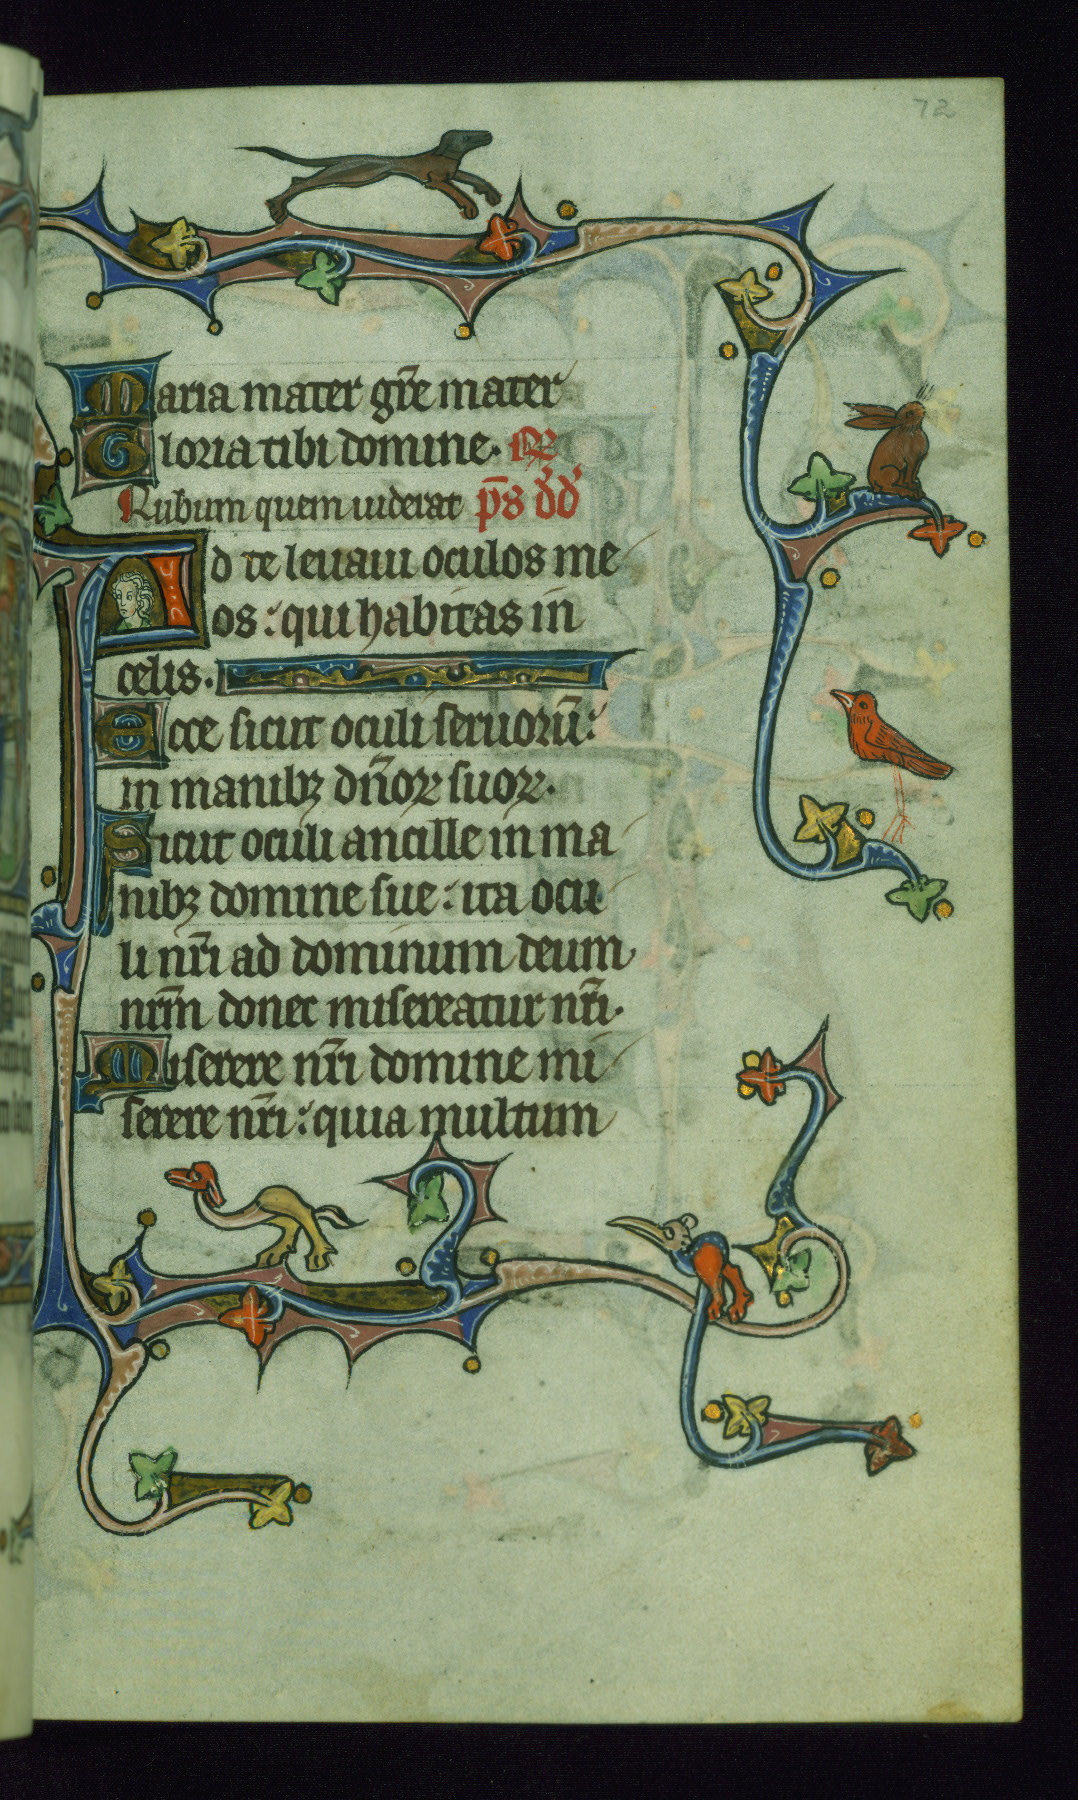 72
Maria mater gr̄e mater
Gloria tibi domine. 
Rubum quem uiderat p̄s d̄d̄
Ad te leuaui oculos me
os: qui habitas in
celis.
Ecce sicut oculi seruorū:
in manibꝫ dn̄oꝝ suoꝝ.
Sicut oculi ancille in ma
nibꝫ domine sue: ita ocu
li nr̄i ad dominum deum
nrm̄ donec misereatur nr̄i.
Miserere nr̄i domine mi
serere nr̄i: quia multum